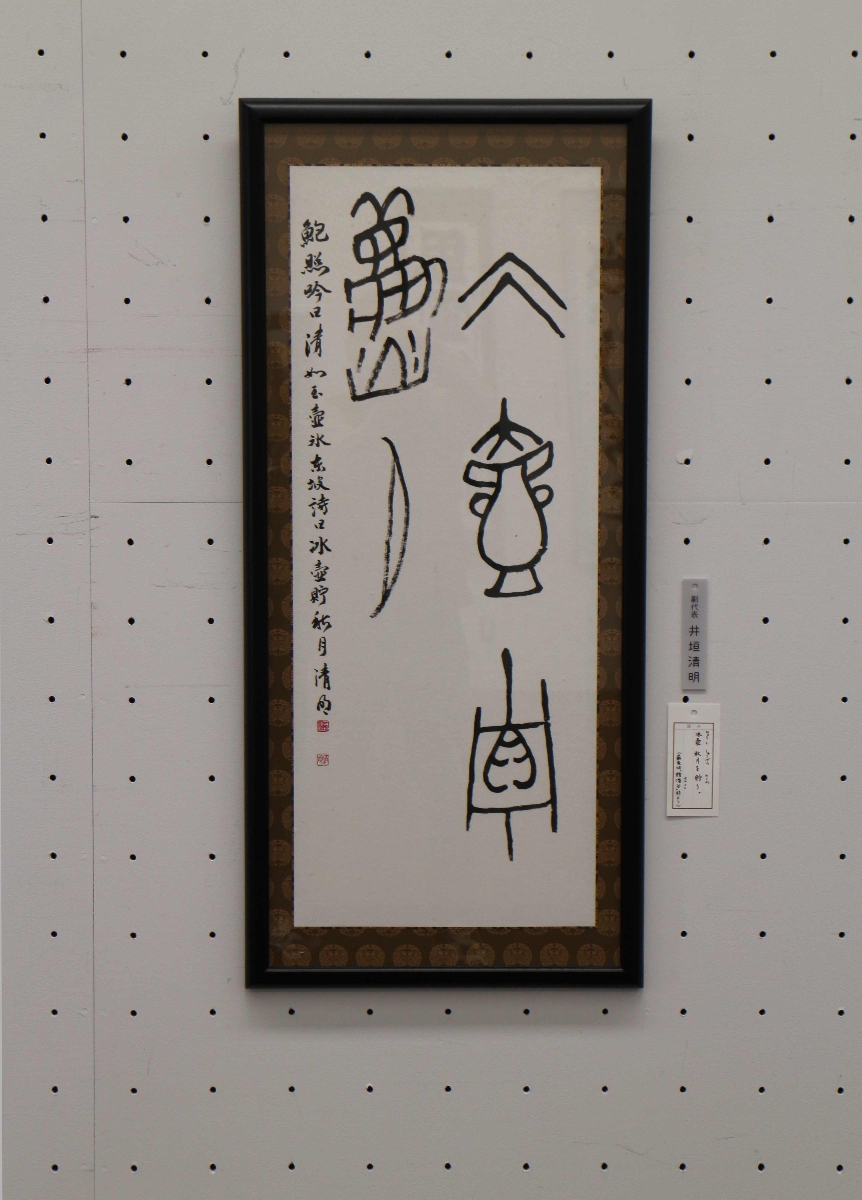 冰壺貯
秋月
鮑照吟曰清如玉壺氷東坡詩曰冰壺貯秋月清明
副代表 井垣清明
冰壺 秋月を貯う。